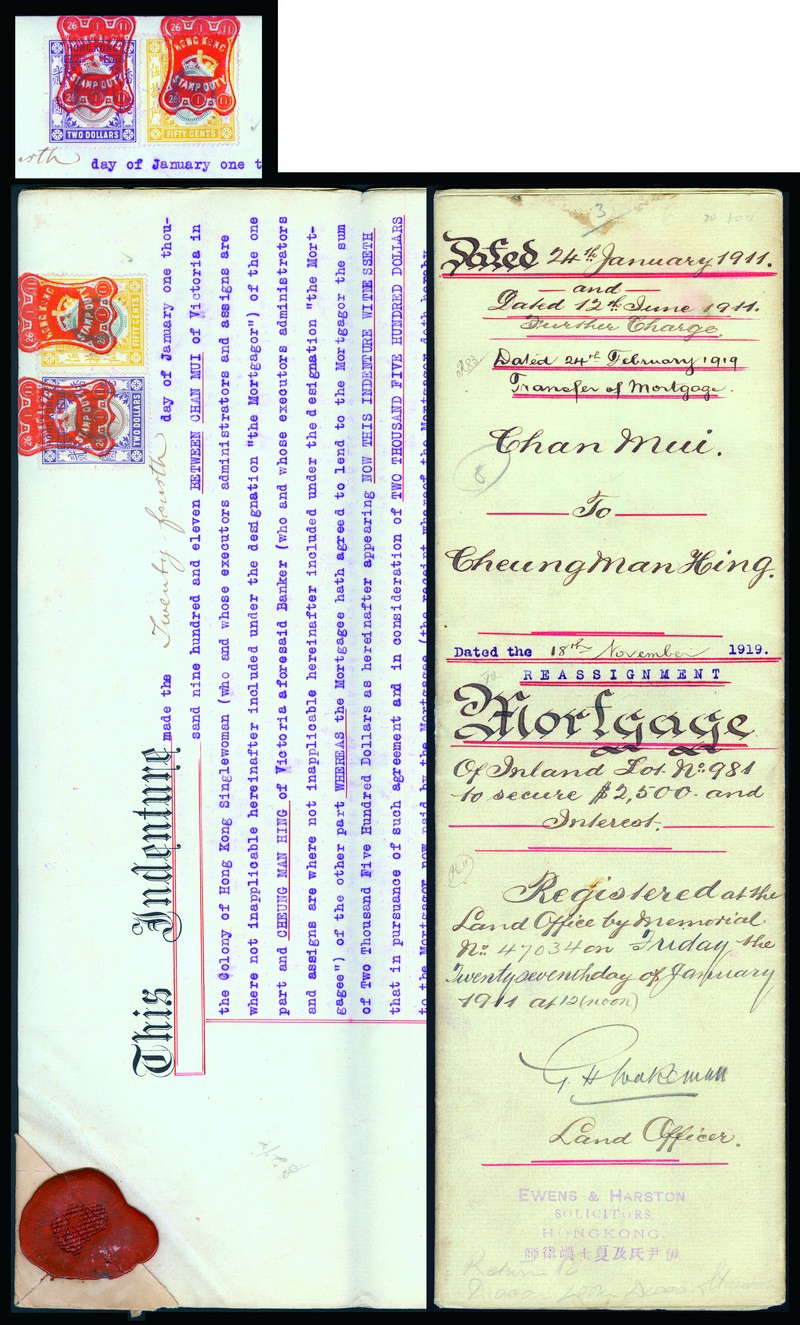 26 1 11
26 1 11
HONG KONG
HONG KONG
STAMP DUTY
STAMP DUTY
26 1 11
26 1 11
TWO DOLLARS
FIFTY CENTS
day of January one t
This Indenture made the Twenty fourth day of January one thou-
sand nine hundred and eleven BETWEEN CHAN MUI of Victoria in
the Colony of Hong Kong Singlewoman (who and whose executors administrators and assigns are
where not inapplicable hereinafter included under the designation "the Mortgagor") of the one
part and CHEUNG MAN HING of Victoria aforesaid Banker (who and whose executors administrators
and assigns are where not inapplicable hereinafter included under the designation "the Mort-
gagee") of the other part WHEREAS the Mortgagee hath agreed to lend to the Mortgagor the sum
of Two Thousand Five Hundred Dollars as hereinafter appearing NOW THIS INDENTURE WITNESSETH
that in pursuance of such agreement and in consideration of TWO THOUSAND FIVE HUNDRED DOLLARS
to the Mortgagor now paid by the Mortgagee (the receipt whereof the Mortgagor doth hereby
HONG KONG
STAMP DUTY
26 1 11
FIFTY CENTS
STAMP DUTY
26 1 11
TWO DOLLARS
3
Dated 24th January 1911.
and
Dated 12th June 1911.
Further Charge.
Dated 24th February 1919
Transfer of Mortgage.
Chan Mui.
8
To
Cheung Man Hing.
Dated the 18th November 1919.
REASSIGNMENT
Mortgage
Of Inland Lot No. 981
to secure $2,500. and
Interest.
Registered at the
Land Office by Memorial
No. 47034 on Friday the
Twenty seventh day of January
1911 at 12 (noon)
G H Wakeman
Land Officer.
EWENS & HARSTON
SOLICITORS,
HONGKONG.
師律端士夏及氏尹伊
Return to